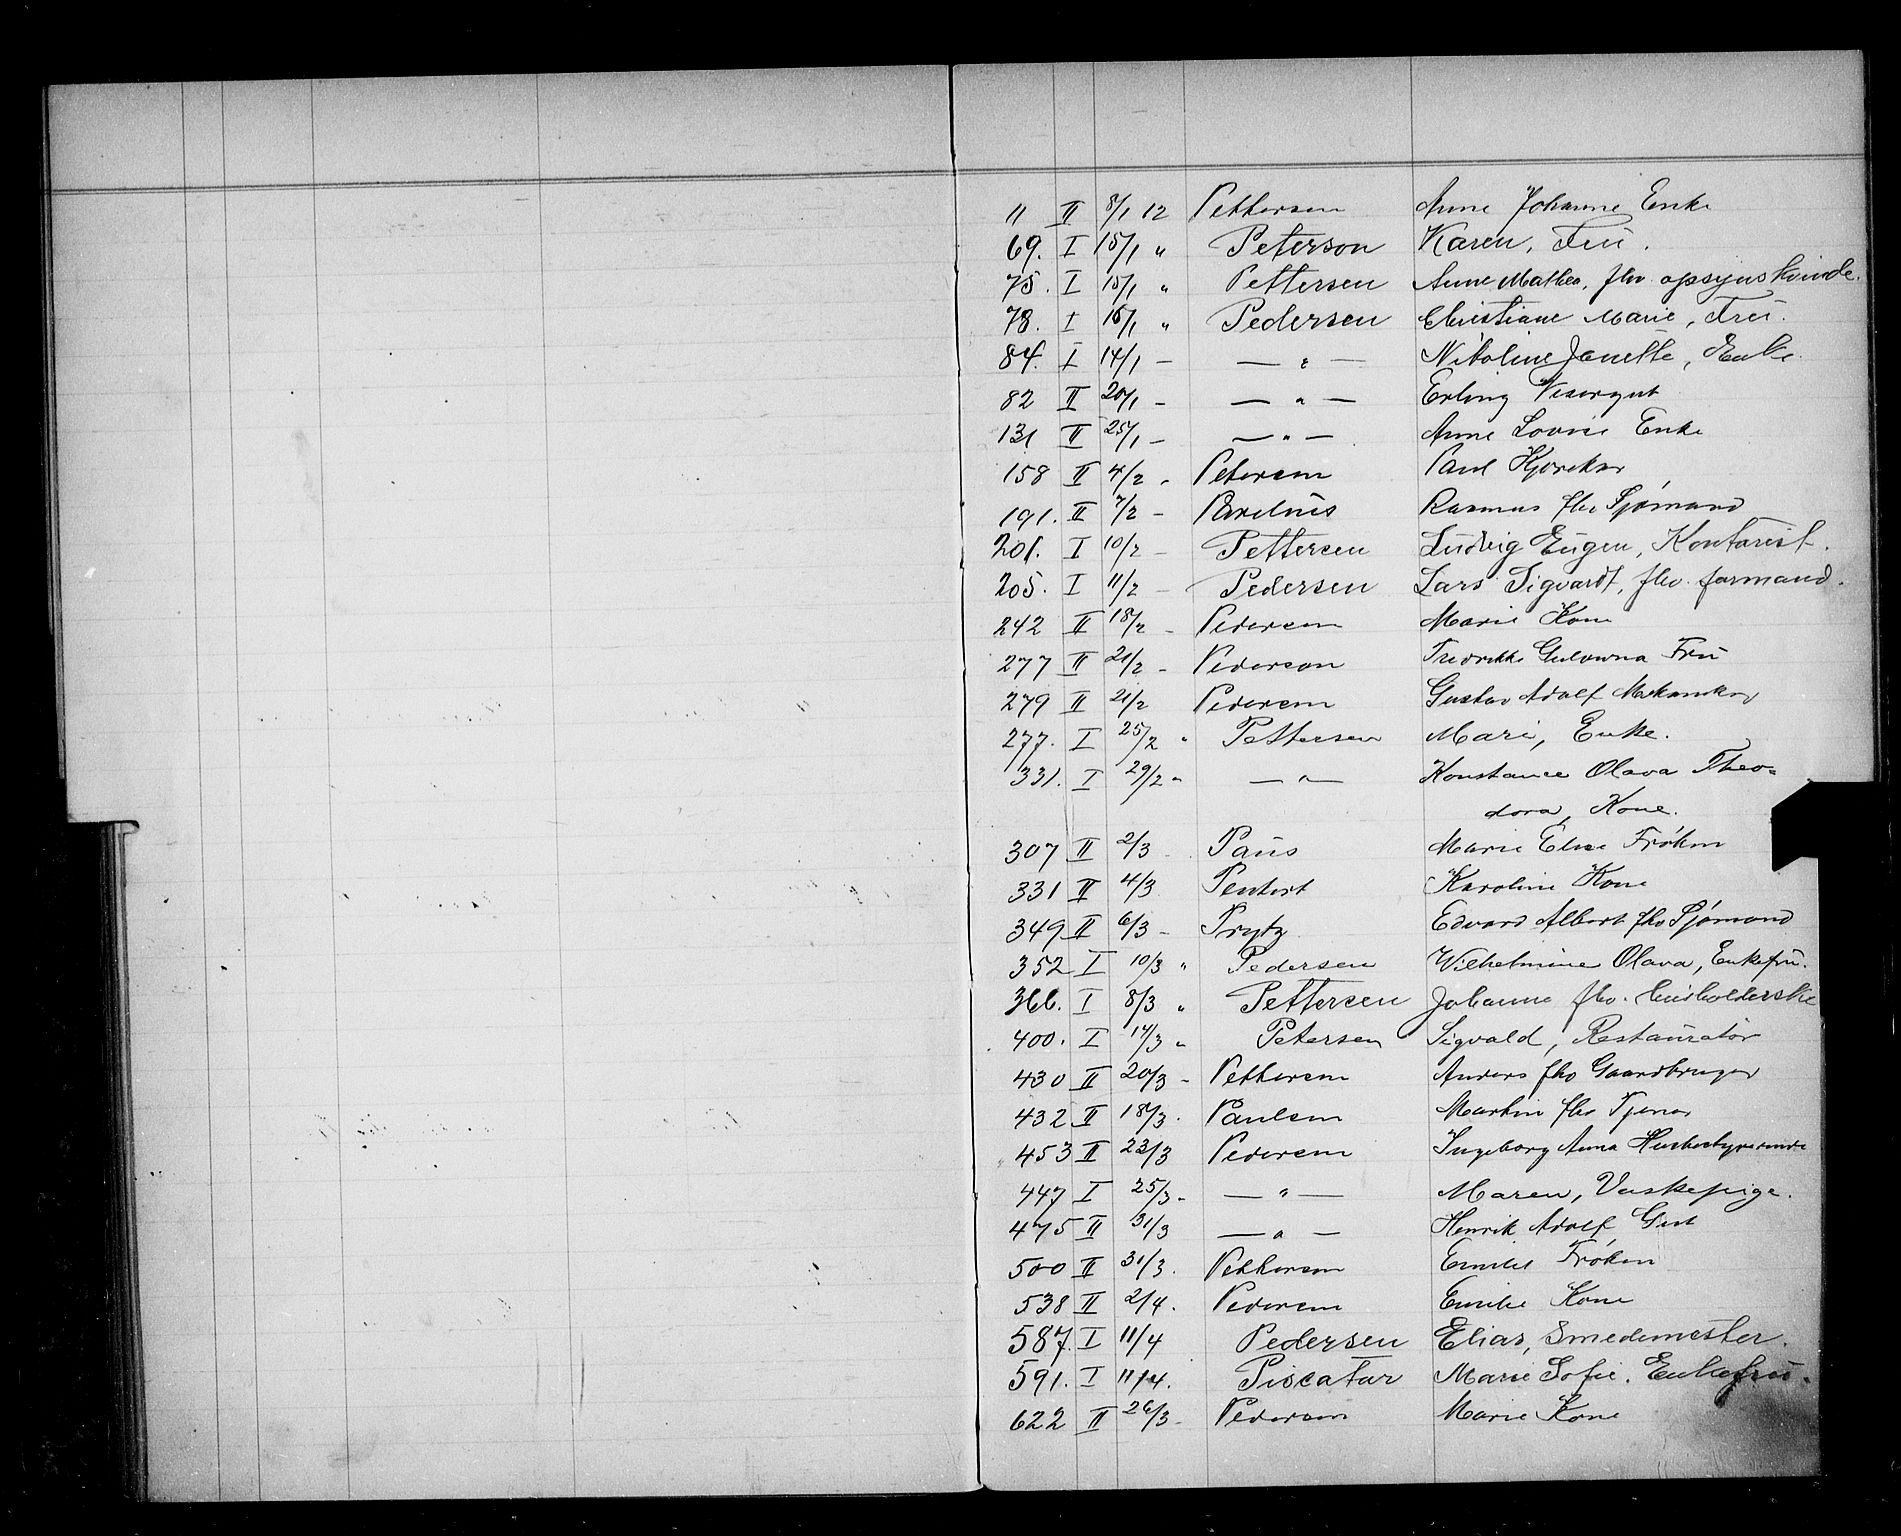 11 II 8/1 12 Pettersen Anne Johanne Enke
69. I 15/1 " Peterson Karen, Fru.
75. I 15/1 " Pettersen Anne Mathea, fhv opsynskvinde.
78. I 16/1 " Pedersen Christiane Marie, Fru.
84. I 14/1 — — " — Nikoline Janette, Enke.
82 II 20/1 — — " — Erling Visergut
131 II 25/1 — — " — Anne Lovise Enke
158 II 4/2 - Petersen Paul
191. II 7/2 - Rasmus fhv Sjømand
201. I 10/2 - Pettersen Ludvig Eugen, Kontorist.
205. I 11/2 - Pedersen Lars Sigvardt, fhv. formand.
242 II 18/2 - Pedersen Marie Kone
277 II 21/2 - Pederson Fredrikke Fru
279 II 21/2 Pedersen Gustav Adolf Mekaniker
277. I 25/2 " Pettersen Mari, Enke.
331. I 29/2 " — " — Konstance Olava Theo=
dora, Kone.
307 II 2/3 - Paus Marie Elise Frøken
331 II 4/3 Karoline Kone
349 II 6/3 - Prytz Edvard Albert fhv Sjømand
352 I 10/3 " Pedersen Wilhelmine Olava, Enkefru.
366. I 8/3 " Pettersen Johanne fhv. husholderske
400. I 14/3 " Petersen Sigvald, Restauratør
430 II 20/3 - Pettersen Anders fhv Gaardbruger
432 II 18/3. Paulsen Martin fhv Tjener
453 II 23/3 Pedersen Ingeborg Anna Husbestyrerinde
447 I 25/3 - — " — Maren, Vaskepige.
475 II 31/3 — " — Henrik Adolf Gut
500 II 31/3. Pettersen Emilie Frøken
538 II 2/4. Pedersen Emilie Kone
587. I 11/4 Pedersen Elias, Smedemester.
591. I 11/4. Piscator Marie Sofie. Enkefru.
622 II 26/3 - Pedersen Marie Kone